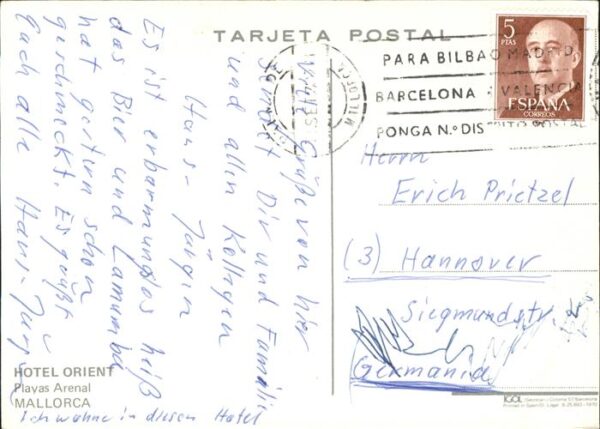 TARJETA POSTAL
5
PTAS
ESPAÑA
CORREOS
PARA BILBAO MADRID
BARCELONA VALENCIA
PONGA N.º DISTRITO POSTAL
MALLORCA
Viele Grüße von hier
sendet Dir und Familie
und allen Kollegen
Hans-Jürgen
Es ist erbarmungslos heiß
das Bier und Lamumba
hat gestern schon
geschmeckt. Es grüßt
Euch alle Hans-Jürgen
Herrn
Erich Prietzel
(3) Hannover
Siegmundstr.
Germania
HOTEL ORIENT
Playas Arenal
MALLORCA
Ich wohne in diesem Hotel